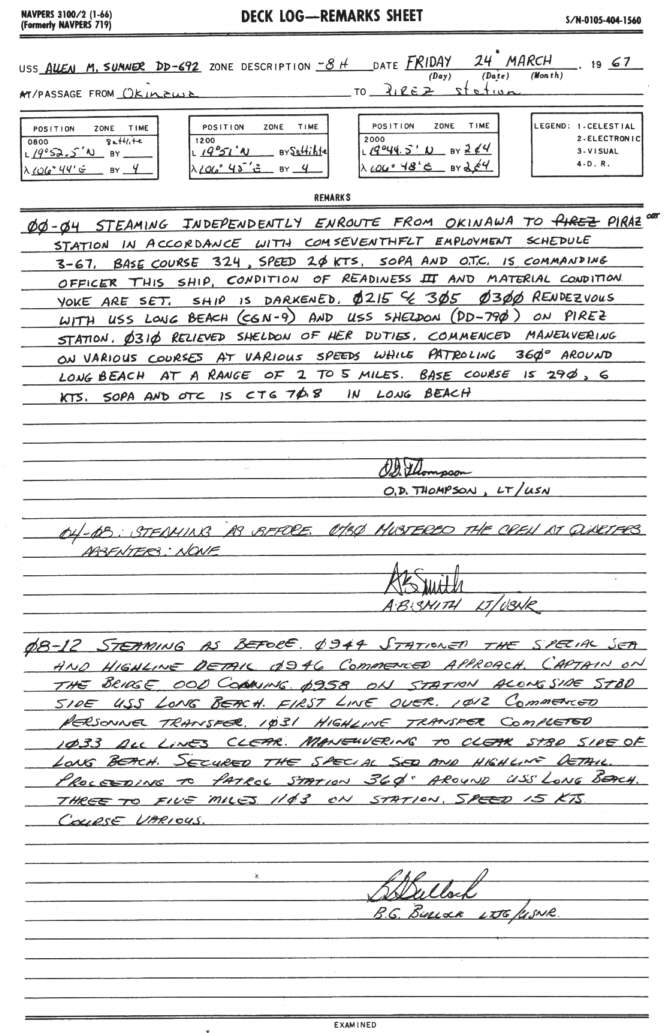 NAVPERS 3100/2 (1-66)
(Formerly NAVPERS 719)
DECK LOG—REMARKS SHEET
S/N-0105-404-1560
USS ALLEN M. SUMNER DD-692 ZONE DESCRIPTION -8H DATE FRIDAY 24 MARCH 1967
(Day) (Date) (Month)
AT/PASSAGE FROM Okinawa TO PIREZ Station
POSITION ZONE TIME
0800
L 19°52.5'N BY
λ 106°44'E BY 4
POSITION ZONE TIME
1200
L 19°51'N BY
λ 106°45'E BY 4
POSITION ZONE TIME
2000
L 19°44.5'N BY 2&4
λ 106°48'E BY 2&4
LEGEND: 1-CELESTIAL
2-ELECTRONIC
3-VISUAL
4-D. R.
REMARKS
ØØ-Ø4 STEAMING INDEPENDENTLY ENROUTE FROM OKINAWA TO PIREZ PIRAZ
STATION IN ACCORDANCE WITH COMSEVENTHFLT EMPLOYMENT SCHEDULE
3-67. BASE COURSE 324, SPEED 2Ø KTS. SOPA AND O.T.C. IS COMMANDING
OFFICER THIS SHIP. CONDITION OF READINESS III AND MATERIAL CONDITION
YOKE ARE SET. SHIP IS DARKENED. Ø215 C/C 3Ø5 Ø3ØØ RENDEZVOUS
WITH USS LONG BEACH (CGN-9) AND USS SHELDON (DD-79Ø) ON PIREZ
STATION. Ø31Ø RELIEVED SHELDON OF HER DUTIES. COMMENCED MANEUVERING
ON VARIOUS COURSES AT VARIOUS SPEEDS WHILE PATROLING 36Ø° AROUND
LONG BEACH AT A RANGE OF 2 TO 5 MILES. BASE COURSE IS 29Ø, 6
KTS. SOPA AND OTC IS CTG 7Ø.8 IN LONG BEACH
O.D. Thompson
O.D. THOMPSON, LT/USN
04-08: STEAMING AS BEFORE. 0730 MUSTERED THE CREW AT QUARTERS
ABSENTEES: NONE
A B Smith
A.B. SMITH LT/USNR
Ø8-12 STEAMING AS BEFORE. Ø944 STATIONED THE SPECIAL SEA
AND HIGHLINE DETAIL Ø946 COMMENCED APPROACH. CAPTAIN ON
THE BRIDGE OOD CONNING. Ø958 ON STATION ALONGSIDE STBD
SIDE USS LONG BEACH. FIRST LINE OVER. 1Ø12 COMMENCED
PERSONNEL TRANSFER. 1Ø31 HIGHLINE TRANSFER COMPLETED
1Ø33 ALL LINES CLEAR. MANEUVERING TO CLEAR STBD SIDE OF
LONG BEACH. SECURED THE SPECIAL SEA AND HIGHLINE DETAIL.
PROCEEDING TO PATROL STATION 36Ø° AROUND USS LONG BEACH.
THREE TO FIVE MILES 11Ø3 ON STATION. SPEED 15 KTS
COURSE VARIOUS.
B G Bullock
B.G. BULLOCK LTJG/USNR.
EXAMINED